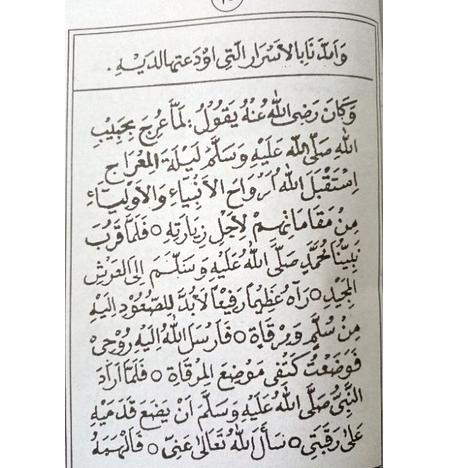 وَامْدُدْنَا بِالْأَسْرَارِ الَّتِي اَوْدَعْتَهَا لَدَيْهِ.
وَكَانَ رَضِىَ اللهُ عَنْهُ يَقُوْلُ: لَمَّا عُرِجَ بِحَبِيْبِ
اللهِ صَلَّى اللهُ عَلَيْهِ وَسَلَّمَ لَيْلَةَ الْمِعْرَاجِ
اِسْتَقْبَلَ اللهُ اَرْوَاحَ الْأَنْبِيَاءِ وَالْأَوْلِيَاءِ
مِنْ مَقَامَاتِهِمْ لِأَجْلِ زِيَارَتِهِ ○ فَلَمَّا قَرُبَ
نَبِيُّنَا مُحَمَّدٌ صَلَّى اللهُ عَلَيْهِ وَسَلَّمَ اِلَى الْعَرْشِ
الْمَجِيْدِ ○ رَآهُ عَظِيْمًا رَفِيْعًا لَابُدَّ لِلصُّعُوْدِ اِلَيْهِ
مِنْ سُلَّمٍ وَمِرْقَاةٍ ○ فَاَرْسَلَ اللهُ اِلَيْهِ رُوْحِىْ
فَوَضَعْتُ كَتِفِى مَوْضِعَ الْمِرْقَاةِ ○ فَلَمَّا اَرَادَ
النَّبِىُّ صَلَّى اللهُ عَلَيْهِ وَسَلَّمَ اَنْ يَضَعَ قَدَمَيْهِ
عَلَى رَقَبَتِى ○ سَأَلَ اللهَ تَعَالَى عَنِّى ○ فَاَلْهَمَهُ